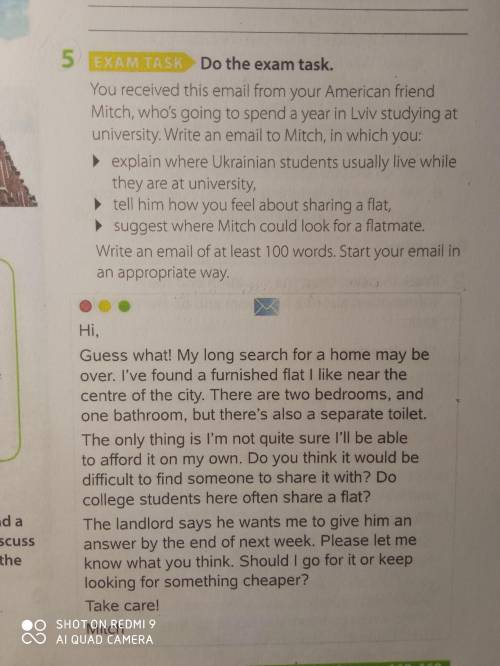 5 EXAM TASK Do the exam task.
You received this email from your American friend
Mitch, who's going to spend a year in Lviv studying at
university. Write an email to Mitch, in which you:
explain where Ukrainian students usually live while
they are at university,
tell him how you feel about sharing a flat,
suggest where Mitch could look for a flatmate.
Write an email of at least 100 words. Start your email in
an appropriate way.
Hi,
Guess what! My long search for a home may be
over. I've found a furnished flat I like near the
centre of the city. There are two bedrooms, and
one bathroom, but there's also a separate toilet.
The only thing is I'm not quite sure I'll be able
to afford it on my own. Do you think it would be
difficult to find someone to share it with? Do
college students here often share a flat?
The landlord says he wants me to give him an
answer by the end of next week. Please let me
know what you think. Should I go for it or keep
looking for something cheaper?
Take care!
Mitch
d a
scuss
the
SHOT ON REDMI 9
AI QUAD CAMERA